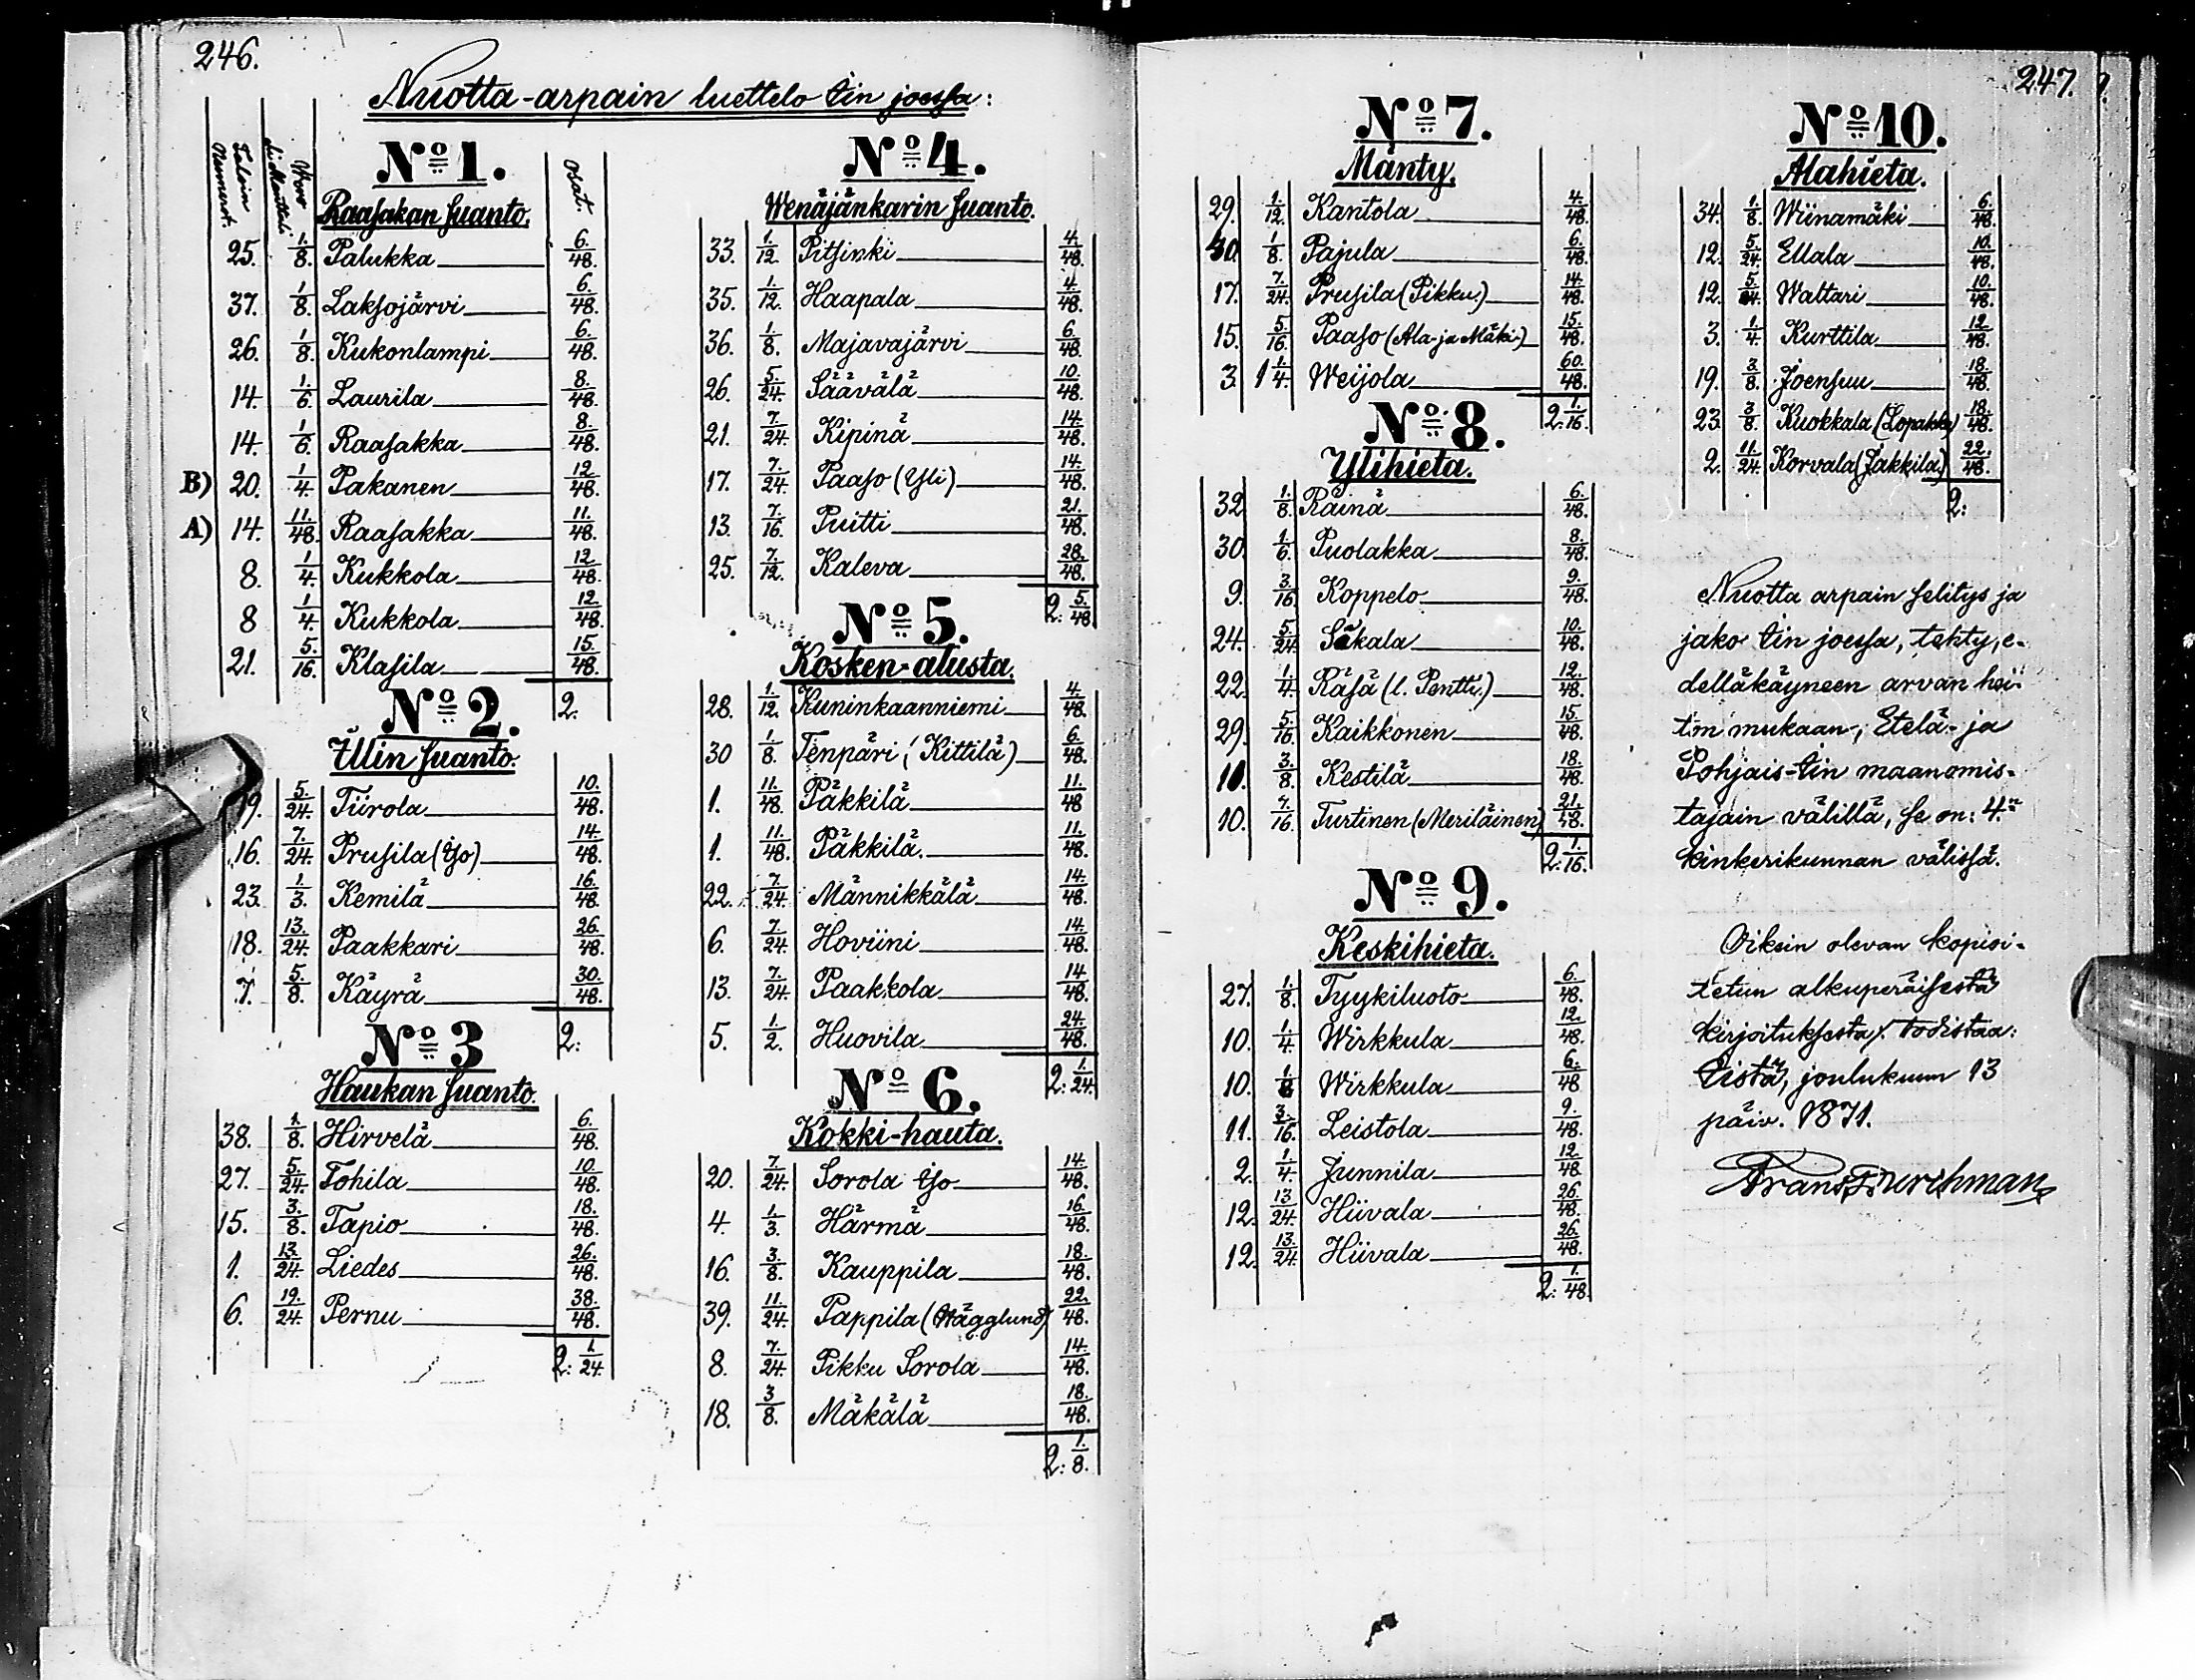 246.
Nuotta-arpain luettelo Iin joessa:
Taloin Numerot.
Wero
osat.
No 1.
Raasakan suanto.
25. 1/8. Palukka 6./48.
37. 1/8. Laksojärvi 6./48.
26. 1/8. Kukonlampi 6./48.
14. 1/6. Laurila 8./48.
14. 1/6. Raasakka 8./48.
B) 20. 1/4. Pakanen 12/48.
A) 14. 11./48. Raasakka 11./48.
8. 1/4. Kukkola 12/48.
8 1/4. Kukkola 12/48.
21. 5./16. Klasila 15./48.
2.
No 2.
Illin suanto.
19. 5./24. Tiirola 10./48.
16. 7./24. Prusila (Iso) 14./48.
23. 1./3. Kemilä 16./48.
18. 13./24. Paakkari 26./48.
7. 5./8. Käyrä 30./48.
2:
No 3
Haukan suanto.
38. 1./8. Hirvelä 6./48.
27. 5./24. Tohila 10./48.
15. 3./8. Tapio 18./48.
1. 13./24. Liedes 26./48.
6. 19./24. Pernu 38./48.
2: 1./24.
No 4.
Wenäjänkarin suanto.
33. 1./12. Pitsinki 4./48.
35. 1./12. Haapala 4./48.
36. 1./8. Majavajärvi 6./48.
26. 5./24. Säävälä 10./48.
21. 7./24. Kipinä 14./48.
17. 7./24. Paaso (Yli) 14./48.
13. 7./16. Puitti 21./48.
25. 7./12. Kaleva 28./48.
2: 5./48
No 5.
Kosken-alusta.
28. 1./12. Kuninkaanniemi 4./48.
30 1./8. Tenpäri (Kittilä) 6./48.
1. 11./48. Päkkilä 11./48
1. 11./48. Päkkilä. 11./48.
22. 7./24. Männikkälä 14./48.
6. 7./24. Hoviini 14./48.
13. 7./24. Paakkola 14/48.
5. 1/2. Huovila 24./48.
2: 1./24.
No 6.
Kokki-hauta.
20. 7./24. Sorola Iso 14./48.
4. 1./3. Härmä 16./48.
16. 3./8. Kauppila 18./48.
39. 11./24. Pappila (Hägglund) 22./48.
8. 7./24. Pikku Sorola 14./48.
18. 3/8. Mäkälä 18./48.
2: 1./8.
247.
No 7.
Mänty.
29. 1./12. Kantola 4./48.
30. 1/8. Pajula 6./48.
17. 7./24. Prusila (Pikku.) 14./48.
15. 5/16. Paaso (Ala-ja Mäki-) 15./48.
3. 1 1/4. Weijola 60./48.
2: 1./16.
No 8.
Ylihieta.
32 1./8. Räinä 6./48.
30. 1./6. Puolakka 8./48.
9. 3./16. Koppelo 9./48.
24. 5./24. Säkala 10./48.
22. 1/4. Räsä (l. Pentti.) 12./48.
29. 5./16. Kaikkonen 15./48.
11. 3./8. Kestilä 18./48.
10. 7./16. Turtinen (Meriläinen) 21./48.
2: 1./16.
No 9.
Keskihieta.
27. 1./8. Tyykiluoto 6./48.
10. 1./4. Wirkkula 12./48.
10. 1./8 Wirkkula 6./48
11. 3./16. Leistola 9./48.
2. 1./4. Junnila 12/48
12. 13/24. Hiivala 26/48.
12. 13./24. Hiivala 26./48.
2: 1./48.
No 10.
Alahieta.
34. 1./8. Wiinamäki 6./48.
12. 5./24. Ellala 10./48.
12. 5./24. Waltari 10./48.
3. 1./4. Kurttila 12/48.
19. 3/8. Joensuu 18./48.
23. 3/8. Kuokkala (Lopakka) 18./48.
2. 11./24. Korvala (Jakkila) 22./48.
2:
Nuotta arpain selitys ja
jako Iin joessa, tehty, e-
delläkäyneen arvan hei-
ton mukaan; Etelä- ja
Pohjais-Iin maanomis-
tajain välillä, se on: 4:n
kinkerikunnan välissä.
Oiksin olevan kopioi-
tetun alkuperäisestä
kirjoituksesta, todistaa:
Iistä, joulukuun 13
päiv. 1871.